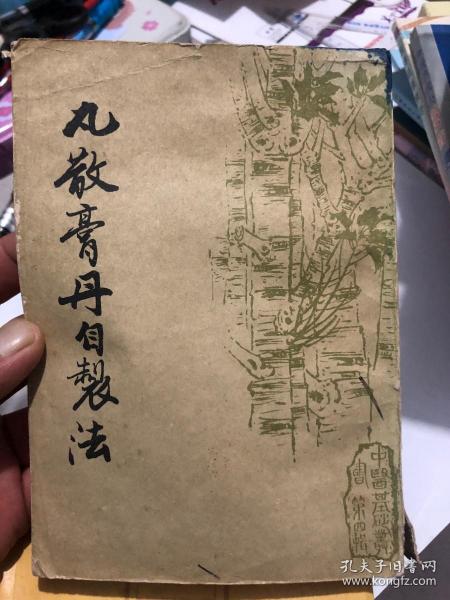 丸散膏丹自製法
中醫基础叢
書 第四輯
孔夫子旧书网
kongfz.com